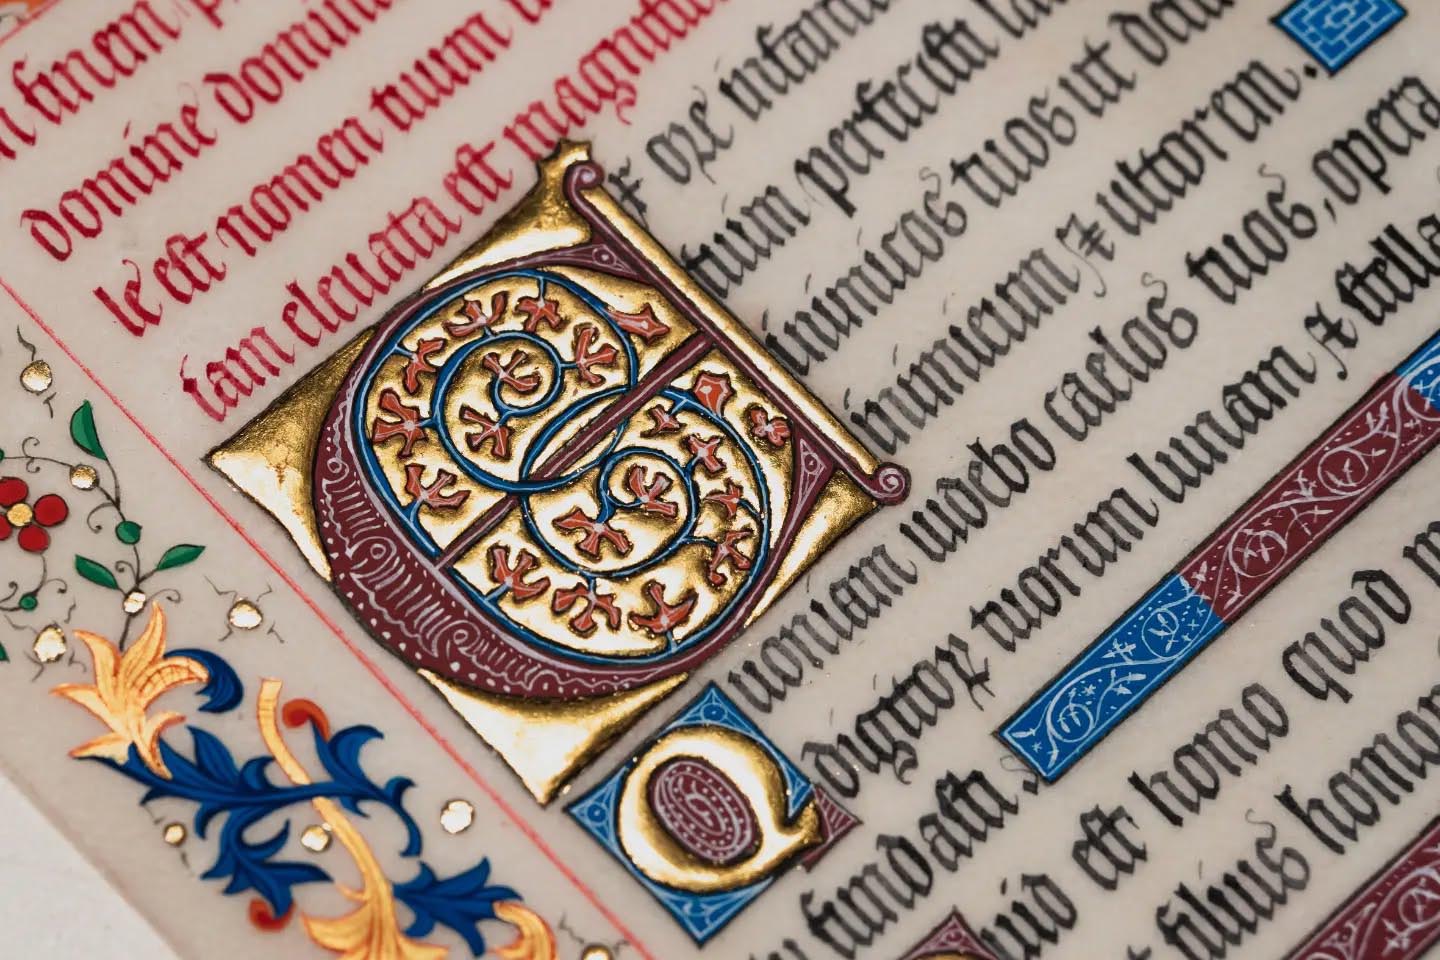 n finem
domine domin
le est nomen tuum
iam eleuata est magnifi
Ex ore infan
tuum perfecisti la
inimicos tuos ut
inimicum ⁊ ultorem.
Quoniam uidebo caelos tuos, opera
digitoꝝ tuorum lunam ⁊ stella
tu fundasti.
Quid est homo quod m
t filius homin